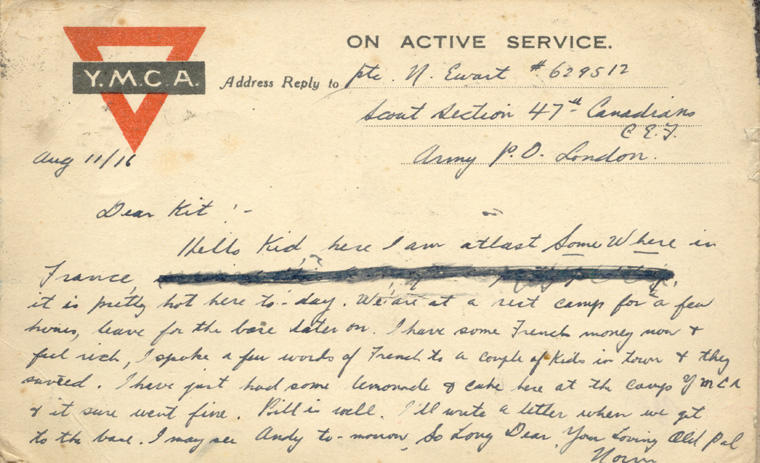 ON ACTIVE SERVICE.
Y.M.C.A.
Address Reply to Pte. N. Ewart # 629512
Scout Section 47th Canadians
C.E.F.
Army P.O. London.
Aug 11/16
Dear Kit :-
Hello Kid, here I am at last Some Where in
France,
it is pretty hot here to-day. We are at a rest camp for a few
hours, leave for the base later on. I have some French money now &
feel rich, I spoke a few words of French to a couple of Kids in town & they
. I have just had some lemonade & cake here at the camp YMCA
& it sure went fine. Bill is well. I'll write a letter when we get
to the base. I may see Andy to-morrow, So Long Dear, Your Loving Old Pal
Norm